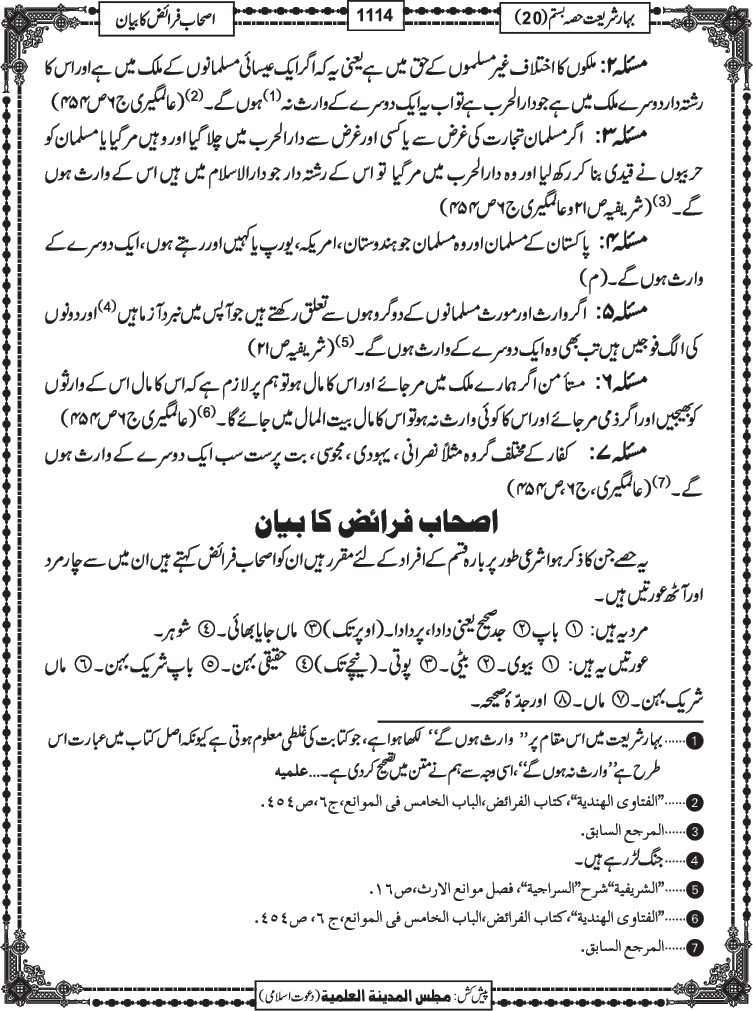 بہار شریعت حصہ بستم (20)
1114
اصحاب فرائض کا بیان
مسئلہ ۲: ملکوں کا اختلاف غیر مسلموں کے حق میں ہے یعنی یہ کہ اگر ایک عیسائی مسلمانوں کے ملک میں ہے اور اس کا
رشتہ دار دوسرے ملک میں ہے جو دارالحرب ہے تو اب یہ ایک دوسرے کے وارث نہ (1) ہوں گے۔(2) (عالمگیری ج۶ ص۴۵۴)
مسئلہ ۳: اگر مسلمان تجارت کی غرض سے یا کسی اور غرض سے دارالحرب میں چلا گیا اور وہیں مر گیا یا مسلمان کو
حربیوں نے قیدی بنا کر رکھ لیا اور وہ دارالحرب میں مر گیا تو اس کے رشتہ دار جو دارالاسلام میں ہیں اس کے وارث ہوں
گے۔(3) (شریفیہ ص۲۱ و عالمگیری ج۶ ص۴۵۴)
مسئلہ ۴: پاکستان کے مسلمان اور وہ مسلمان جو ہندوستان، امریکہ، یورپ یا کہیں اور رہتے ہوں، ایک دوسرے کے
وارث ہوں گے۔ (م)
مسئلہ ۵: اگر وارث اور مورث مسلمانوں کے دو گروہوں سے تعلق رکھتے ہیں جو آپس میں نبرد آزما ہیں (4) اور دونوں
کی الگ فوجیں ہیں تب بھی وہ ایک دوسرے کے وارث ہوں گے۔(5) (شریفیہ ص۲۱)
مسئلہ ۶: مستأمن اگر ہمارے ملک میں مر جائے اور اس کا مال ہو تو ہم پر لازم ہے کہ اس کا مال اس کے وارثوں
کو بھیجیں اور اگر ذمی مر جائے اور اس کا کوئی وارث نہ ہو تو اس کا مال بیت المال میں جائے گا۔(6) (عالمگیری ج۶ ص۴۵۴)
مسئلہ ۷: کفار کے مختلف گروہ مثلاً نصرانی ، یہودی ، مجوسی، بت پرست سب ایک دوسرے کے وارث ہوں
گے۔(7) (عالمگیری، ج۶، ص۴۵۴)
اصحاب فرائض کا بیان
یہ حصے جن کا ذکر ہوا شرعی طور پر بارہ قسم کے افراد کے لئے مقرر ہیں ان کو اصحاب فرائض کہتے ہیں ان میں سے چار مرد
اور آٹھ عورتیں ہیں۔
مرد یہ ہیں: ① باپ ② جد صحیح یعنی دادا، پردادا۔ (اوپر تک) ③ ماں جایا بھائی۔ ④ شوہر۔
عورتیں یہ ہیں: ① بیوی۔ ② بیٹی۔ ③ پوتی۔ (نیچے تک) ④ حقیقی بہن۔ ⑤ باپ شریک بہن۔ ⑥ ماں
شریک بہن۔ ⑦ ماں۔ ⑧ اور جدّۂ صحیحہ۔
1 ...... بہار شریعت میں اس مقام پر ”وارث ہوں گے“ لکھا ہوا ہے، جو کتابت کی غلطی معلوم ہوتی ہے کیونکہ اصل کتاب میں عبارت اس
طرح ہے ”وارث نہ ہوں گے“، اسی وجہ سے ہم نے متن میں تصحیح کر دی ہے۔... علمیه
2 ......”الفتاوی الهندية“، كتاب الفرائض، الباب الخامس في الموانع، ج٦، ص٤٥٤.
3 ......المرجع السابق.
4 ...... جنگ لڑ رہے ہیں۔
5 ......”الشريفية“ شرح ”السراجية“، فصل موانع الارث، ص١٦.
6 ......”الفتاوی الهندية“، كتاب الفرائض، الباب الخامس في الموانع، ج ٦، ص٤٥٤.
7 ......المرجع السابق.
پیش کش: مجلس المدينة العلمية (دعوت اسلامی)